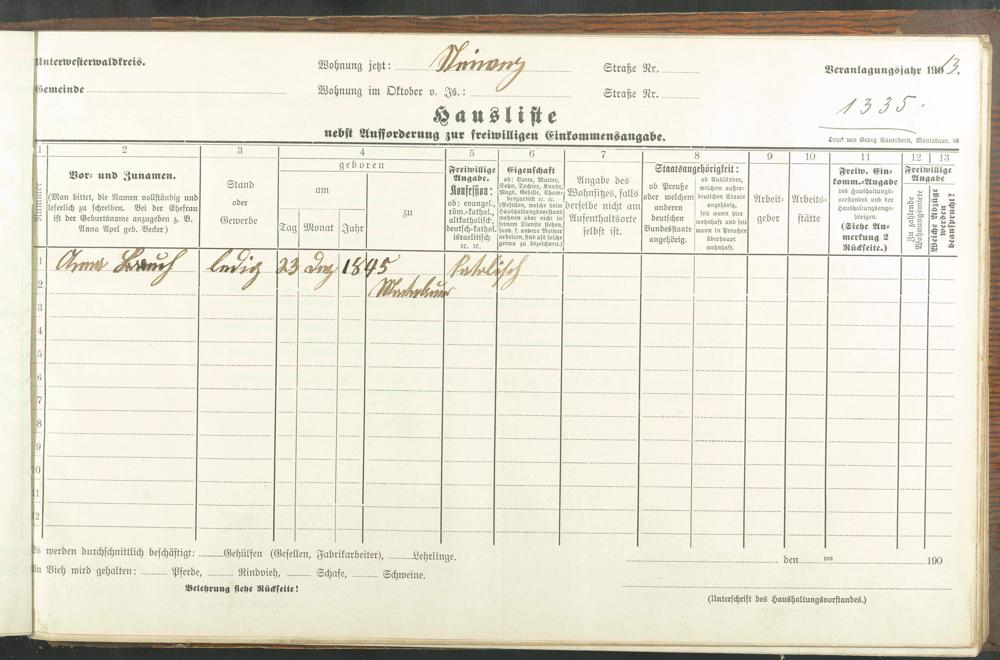 Unterwesterwaldkreis.
Wohnung jetzt:
Straße Nr.
Veranlagungsjahr 1913.
Gemeinde
Wohnung im Oktober v. Js.:
Straße Nr.
1335.
Hausliste
nebst Aufforderung zur freiwilligen Einkommensangabe.
Druck von Georg Sauerborn, Montabaur. 08
1 2 3 4 5 6 7 8 9 10 11 12 13
Nummer
Vor- und Zunamen.
(Man bittet, die Namen vollständig und
leserlich zu schreiben. Bei der Ehefrau
ist der Geburtsname anzugeben z. B.
Anna Apel geb. Becker.)
Stand
oder
Gewerbe
geboren
am
zu
Tag Monat Jahr
Freiwillige
Angabe.
Konfession:
ob: evangel.,
röm.-kathol.,
altkatholisch,
deutsch-kathol.,
israelitisch
ec. ec.
Eigenschaft
ob: Vater, Mutter,
Sohn, Tochter, Knecht,
Magd, Geselle, Cham-
bregarnist ec. ec.
(Gesellen, welche beim
Haushaltungsvorstand
wohnen aber nicht in
seinen Diensten stehen,
sond. f. andere Meister
arbeiten, sind als solche
genau zu bezeichnen.)
Angabe des
Wohnsitzes, falls
derselbe nicht am
Aufenthaltsorte
selbst ist.
Staatsangehörigkeit:
ob Preuße
oder welchem
anderen
deutschen
Bundesstaate
angehörig.
ob Ausländer,
welchem außer-
deutschen Staate
angehörig,
seit wann hier
wohnhaft und seit
wann in Preußen
überhaupt
wohnhaft.
Arbeit-
geber
Arbeits-
stätte
Freiw. Ein-
komm.-Angabe
des Haushaltungs-
vorstandes und der
Haushaltungsange-
hörigen.
(Siehe An-
merkung 2
Rückseite.)
Freiwillige
Angabe
Zu zahlende
Wohnungsmiete
Welche Abzüge
werden
beansprucht?
1 Anna ledig 23 Dez 1845 katolisch
2
3
4
5
6
7
8
9
10
11
12
Es werden durchschnittlich beschäftigt: Gehülfen (Gesellen, Fabrikarbeiter), Lehrlinge.
den ten 190
An Vieh wird gehalten: Pferde, Rindvieh, Schafe, Schweine.
Belehrung siehe Rückseite!
(Unterschrift des Haushaltungsvorstandes.)